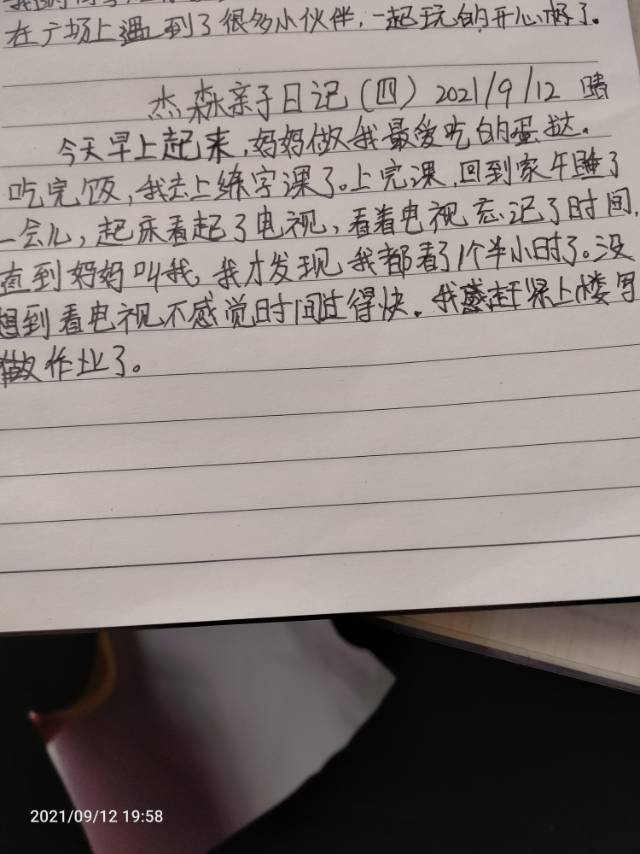 在广场上遇到了很多小伙伴,一起玩的开心极了。
杰森亲子日记(四) 2021/9/12 晴
今天早上起来,妈妈做我最爱吃的蛋挞。
吃完饭,我去上练字课了。上完课,回到家午睡了
一会儿,起床看起了电视,看着电视忘记了时间,
直到妈妈叫我,我才发现我都看了1个半小时了。没
想到看电视不感觉时间过得快。我赶紧上楼写
做作业了。
2021/09/12 19:58